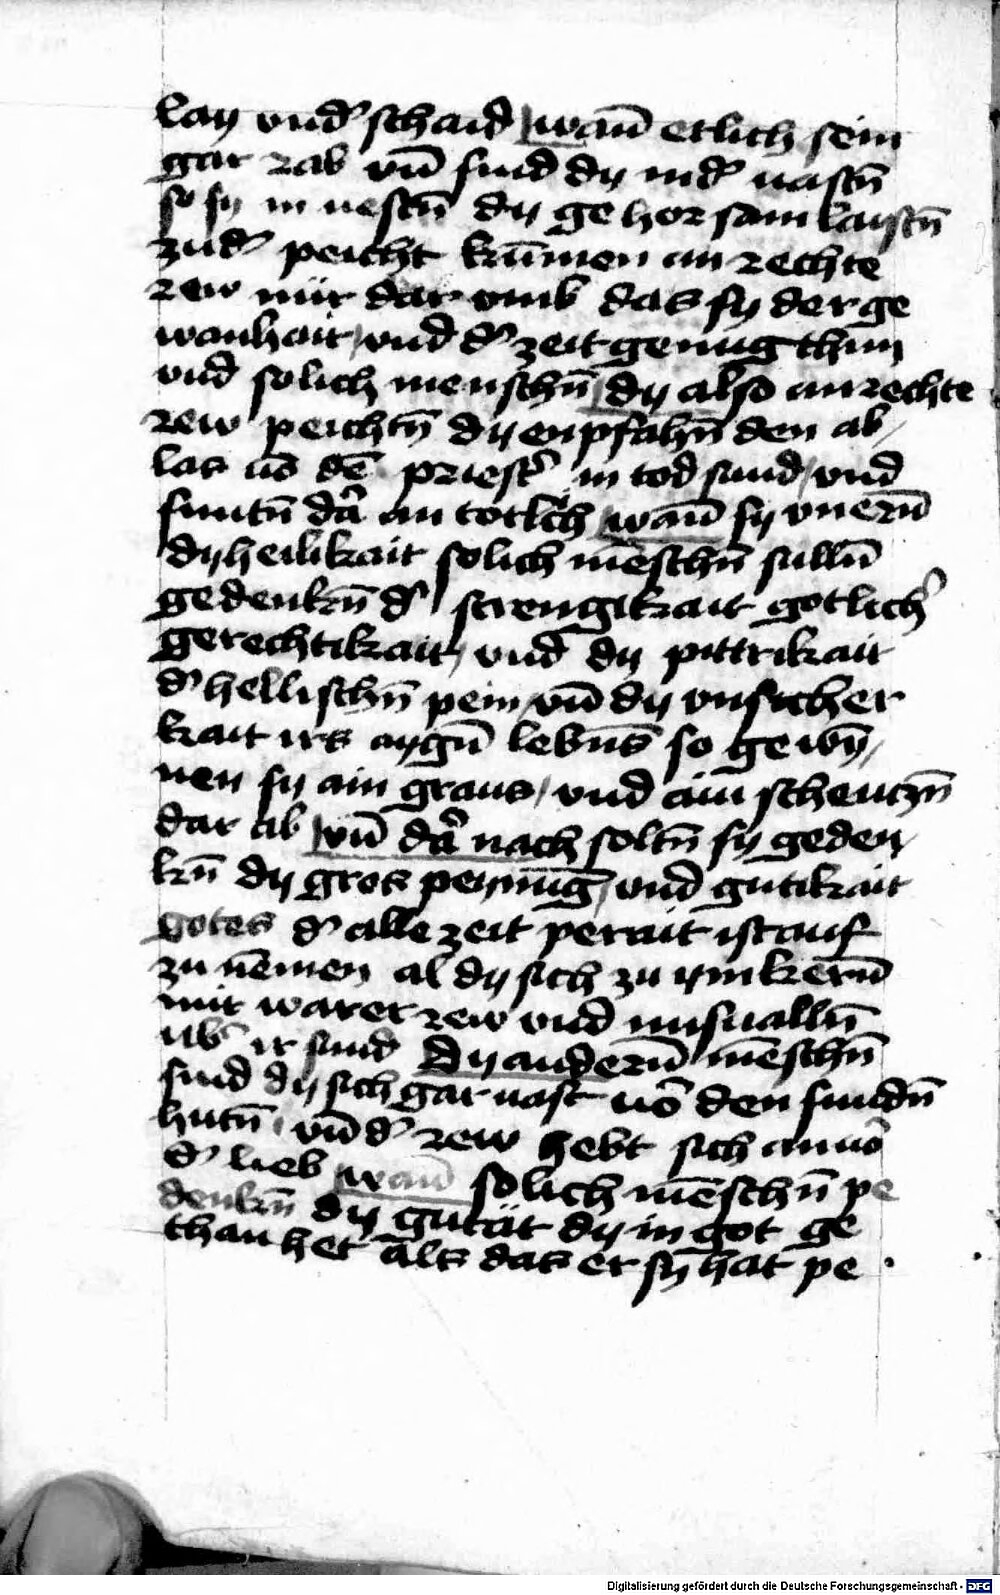 lay vnd' schaid wañ etlich sein
gar rab vñ sind dy in d' vastñ
so sy in vestñ dy ge hor sam laystñ
zu d' peicht kūmen an rechte
rew nür dar vmb das sy der ge
wanhait / vnd d' zeit genug thun
vnd solich menschñ dy also an rechte
rew peichtñ dy enpfahñ den ab /
las vō dē priest' in tod sund / vnd
suntñ dar an totlich wañ sy vnerñ
dy heilikait solich mēschñ sullñ
gedenkñ d' strengikait gotlich'
gerechtikait / vnd dy pittrikait
d' hellischñ pein / vñ dy vnsicher
kait irs aygñ lebñs so gewȳ /
nen sy ain graus / vnd ain scheuczñ
dar ab vñ dar nach soltñ sy geden /
kñ dy gros peynung / vnd gutikait
gotes d' alle zeit perait ist auf
zu nēmen al dy sich zu ym kerñ
mit warer rew vnd misuallñ
vb' ir sund Dy anderñ mēschñ
sind dy sich gar vast vō den sundñ
hutñ / vñ d' rew hebt sich an vō
d' lieb wañ solich mēschñ pe
denkñ dy gutät dy in got ge
than het als das er sy hat pe
Digitalisierung gefördert durch die Deutsche Forschungsgemeinschaft - DFG